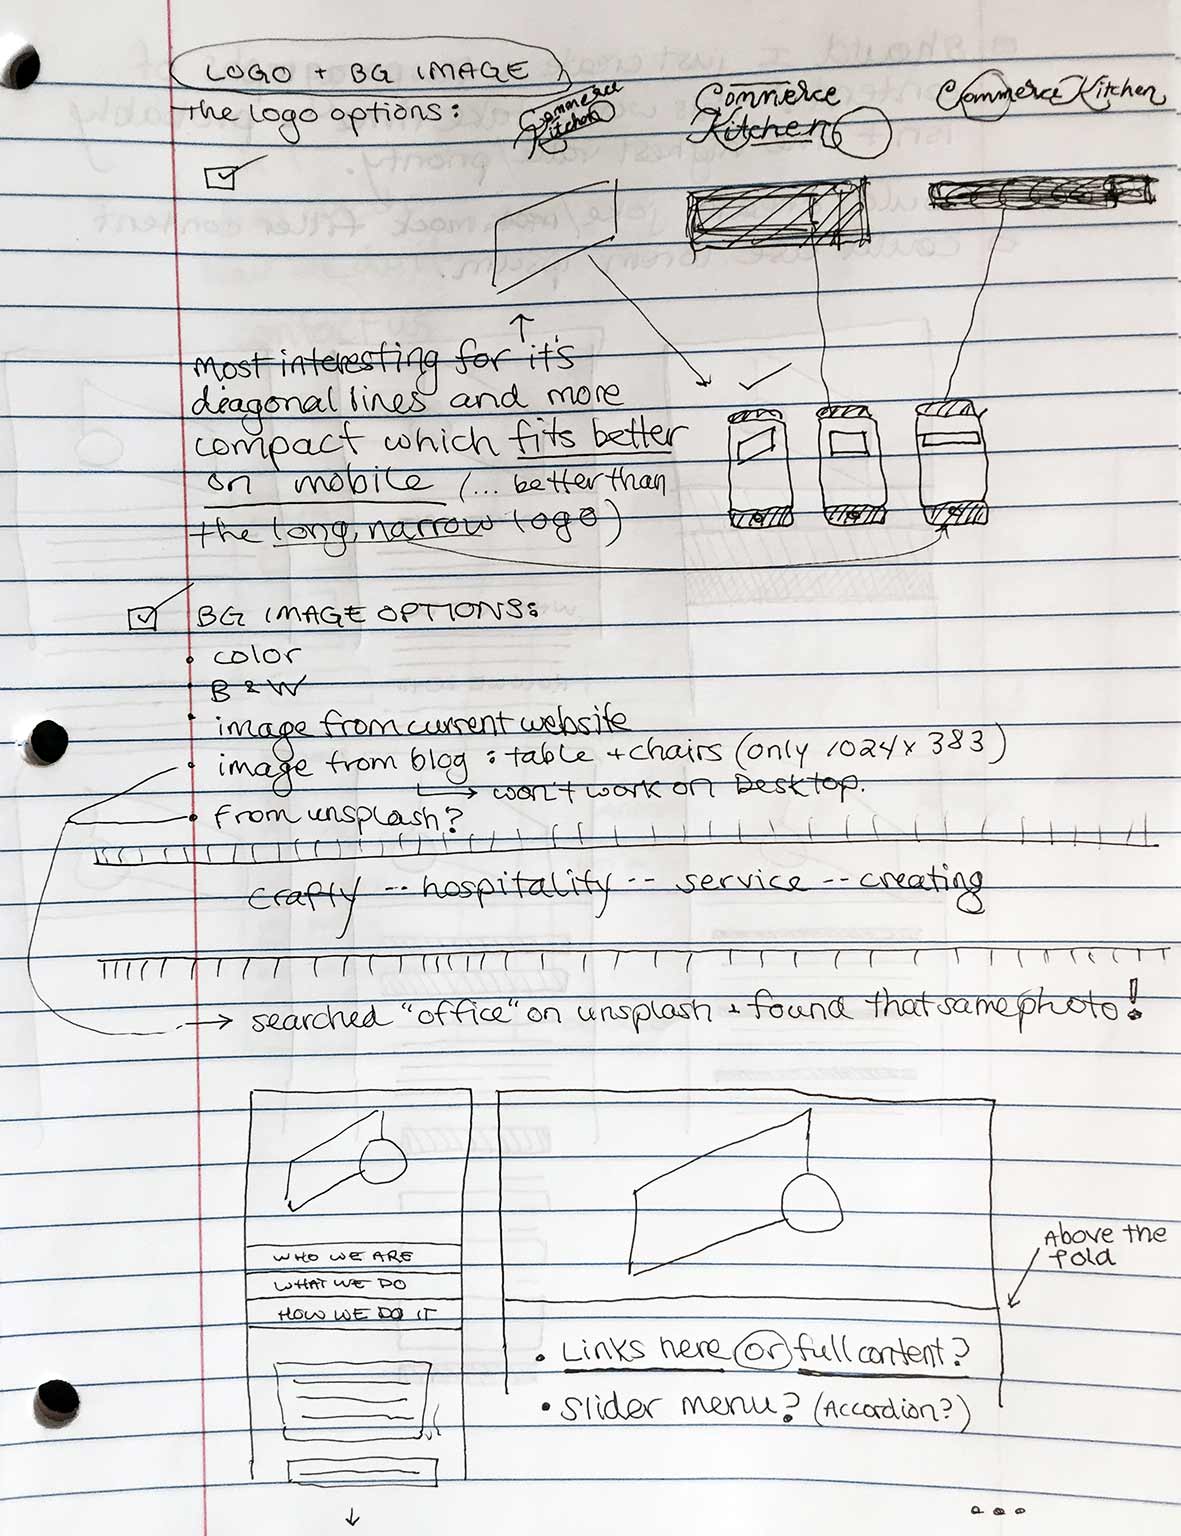 LOGO + BG IMAGE
The logo options:
Commerce
Kitchen
Commerce
Kitchen
Commerce Kitchen
most interesting for it's
diagonal lines and more
compact which fits better
on mobile (... better than
the long, narrow logo)
BG IMAGE OPTIONS:
• color
• B & W
• image from current website
• image from blog : table + chairs (only 1024 x 383)
→ won't work on Desktop.
• From unsplash?
crafty -- hospitality -- service -- creating
→ searched "office" on unsplash + found that same photo!
WHO WE ARE
WHAT WE DO
HOW WE DO IT
Above the
fold
• Links here or full content?
• Slider menu? (Accordion?)